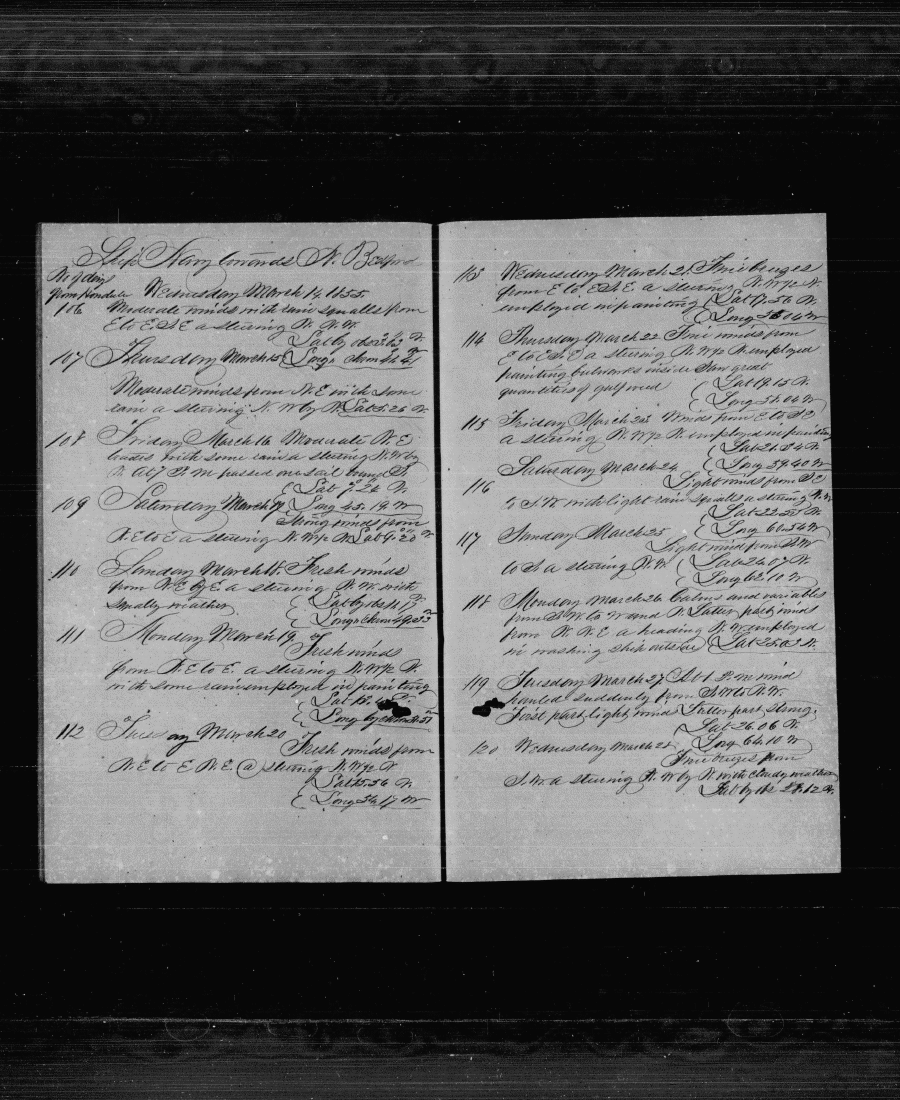 Ship Navy towards N. Bedford
No of days
from Honolulu Wednesday March 14. 1855.
106 Moderate winds with rain squalls from
E to E.S.E a steering N. N. W.
Lat by obs
107 Thursday March 15 Long. chm
Moderate winds from N.E with some
rain a steering N. W by N Lat 5.26 N.
108 Friday March 16 Moderate N. E
trades with some rain a steering N.W by
N. At 7 P. M passed one sail bound S
Lat 7.26 N
109 Saturday March 17 Long 45.19 W
Strong winds from
N.E to E a steering N. W ½ N Lat 9.20 N
110 Sunday March 18 Fresh winds
from N.E by E. a steering N. W. with
squally weather
Lat by obs 11.17
Long chm 49.53
111 Monday March 19
Fresh winds
from N.E to E. a steering N. W ½ N.
with some rain employed in painting
Lat
Long by chm
112 Tuesday March 20
Fresh winds from
N.E to E N.E @ steering N. W ½ N
Lat 15.36 N.
Long 54.17 W
113 Wednesday March 21. Fine breezes
from E to E.S.E. a steering N. W ½ N
employed in painting Lat 17.56 N.
Long
114 Thursday March 22 Fine winds from
E to E.S.E a steering N. W ½ N employed
painting bulwarks inside Saw great
quantities of gulf weed
Lat 19.15 N
Long
115 Friday March 23. Winds from E to S E
a steering N. W ½ N. employed in painting
Lat 21.34 N.
Saturday March 24 Long 59.40 W
116 Light winds from S E
to S.W. with light rain squalls a steering N. W
Lat 22.
117 Sunday March 25 Long 60.54 W
Light winds from S.W
to S. a steering N.W. Lat 24.07 N
Long 62.10 W
118 Monday March 26. Calms and variables
from S. W. to W and N. Latter part winds
from N. N. E a heading N. W employed
in washing ship outside Lat 25.03 N.
119 Tuesday March 27 At 1 P. m wind
hauled suddenly from S.W to N.W.
First part light winds Latter part strong.
Lat 26.06 N
120 Wednesday March 28 Long 64.10 W
Fine breezes from
S.W. a steering N. W by N with cloudy weather
Lat by obs 28.12 N.